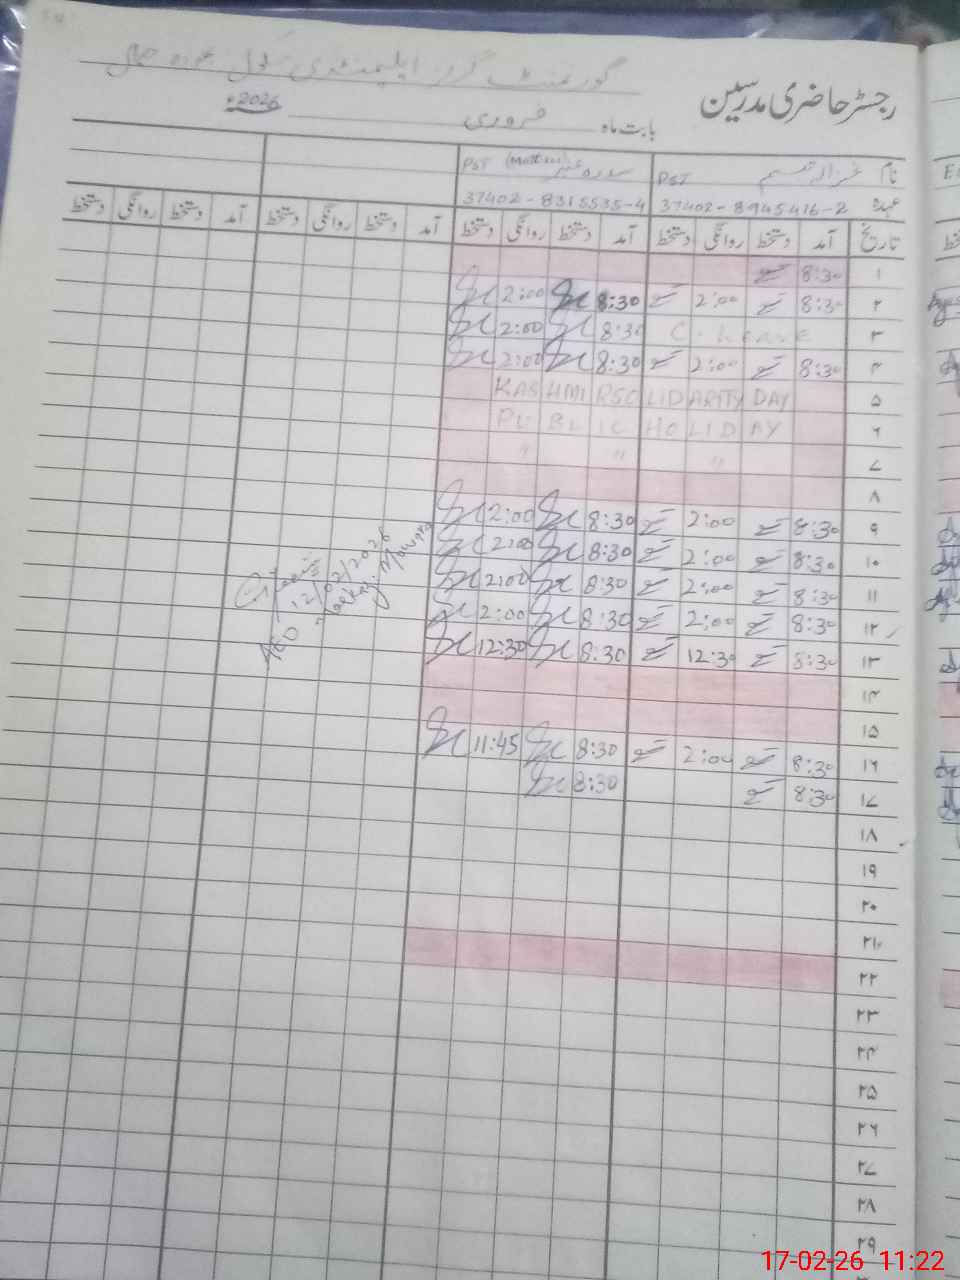 گورنمنٹ گرلز ایلیمنٹری سکول
رجسٹر حاضری مدرسین
بابت ماہ فروری 2026ء
نام غزالہ تبسم PST سدرہ عنبر PST
عہدہ 37402-8945416-2 37402-8315535-4
تاریخ آمد دستخط روانگی دستخط آمد دستخط روانگی دستخط آمد دستخط روانگی دستخط آمد دستخط روانگی دستخط
۱ 8:30
۲ 8:30 2:00 8:30 2:00
۳ C. Leave 8:30 2:00
۴ 8:30 2:00 8:30 2:00
۵ KASHMIR SOLIDARITY DAY
۶ PUBLIC HOLIDAY
۷ " " "
۸
۹ 8:30 2:00 8:30 2:00
۱۰ 8:30 2:00 8:30 2:00
۱۱ 8:30 2:00 8:30 2:00
۱۲ 8:30 2:00 8:30 2:00
۱۳ 8:30 12:30 8:30 12:30
۱۴
۱۵
۱۶ 8:30 2:00 8:30 11:45
۱۷ 8:30 8:30
۱۸
۱۹
۲۰
۲۱
۲۲
۲۳
۲۴
۲۵
۲۶
۲۷
۲۸
۲۹
12/02/2026
AEO
17-02-26 11:22